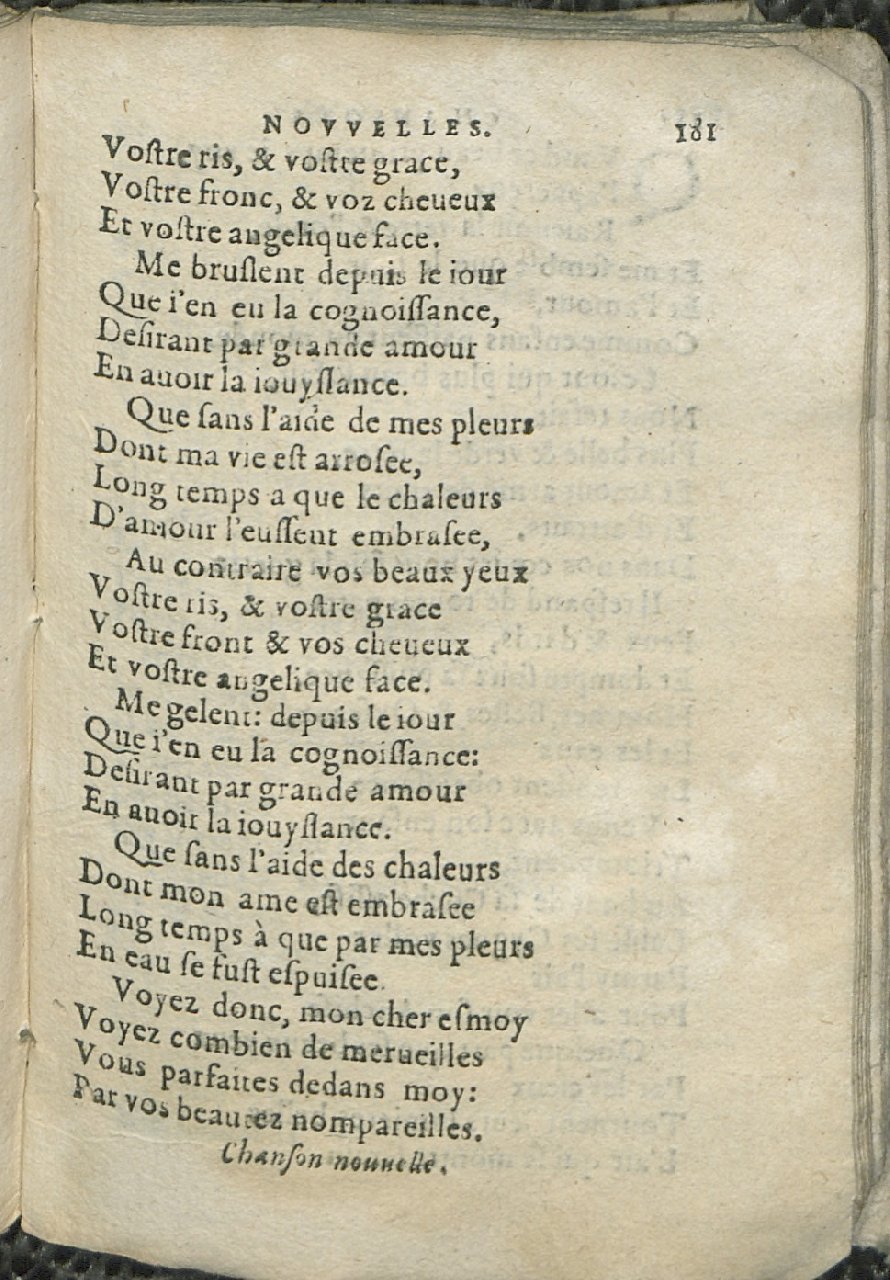 NOVVELLES. 181
Voſtre ris, & voſtre grace,
Voſtre fronc, & voz cheueux
Et voſtre angelique face.
Me bruſlent depuis le iour
Que i'en eu la cognoiſſance,
Deſirant par grande amour
En auoir la iouyſſance.
Que ſans l'aide de mes pleurs
Dont ma vie eſt arroſee,
Long temps a que le chaleurs
D'amour l'euſſent embraſee,
Au contraire vos beaux yeux
Voſtre ris, & voſtre grace
Voſtre front & vos cheueux
Et voſtre angelique face.
Me gelent: depuis le iour
Que i'en eu la cognoiſſance:
Deſirant par grande amour
En auoir la iouyſſance.
Que ſans l'aide des chaleurs
Dont mon ame eſt embraſee
Long temps à que par mes pleurs
En eau ſe fuſt eſpuiſee.
Voyez donc, mon cher eſmoy
Voyez combien de merueilles
Vous parfaites dedans moy:
Par vos beautez nompareilles.
Chanſon nouuelle.